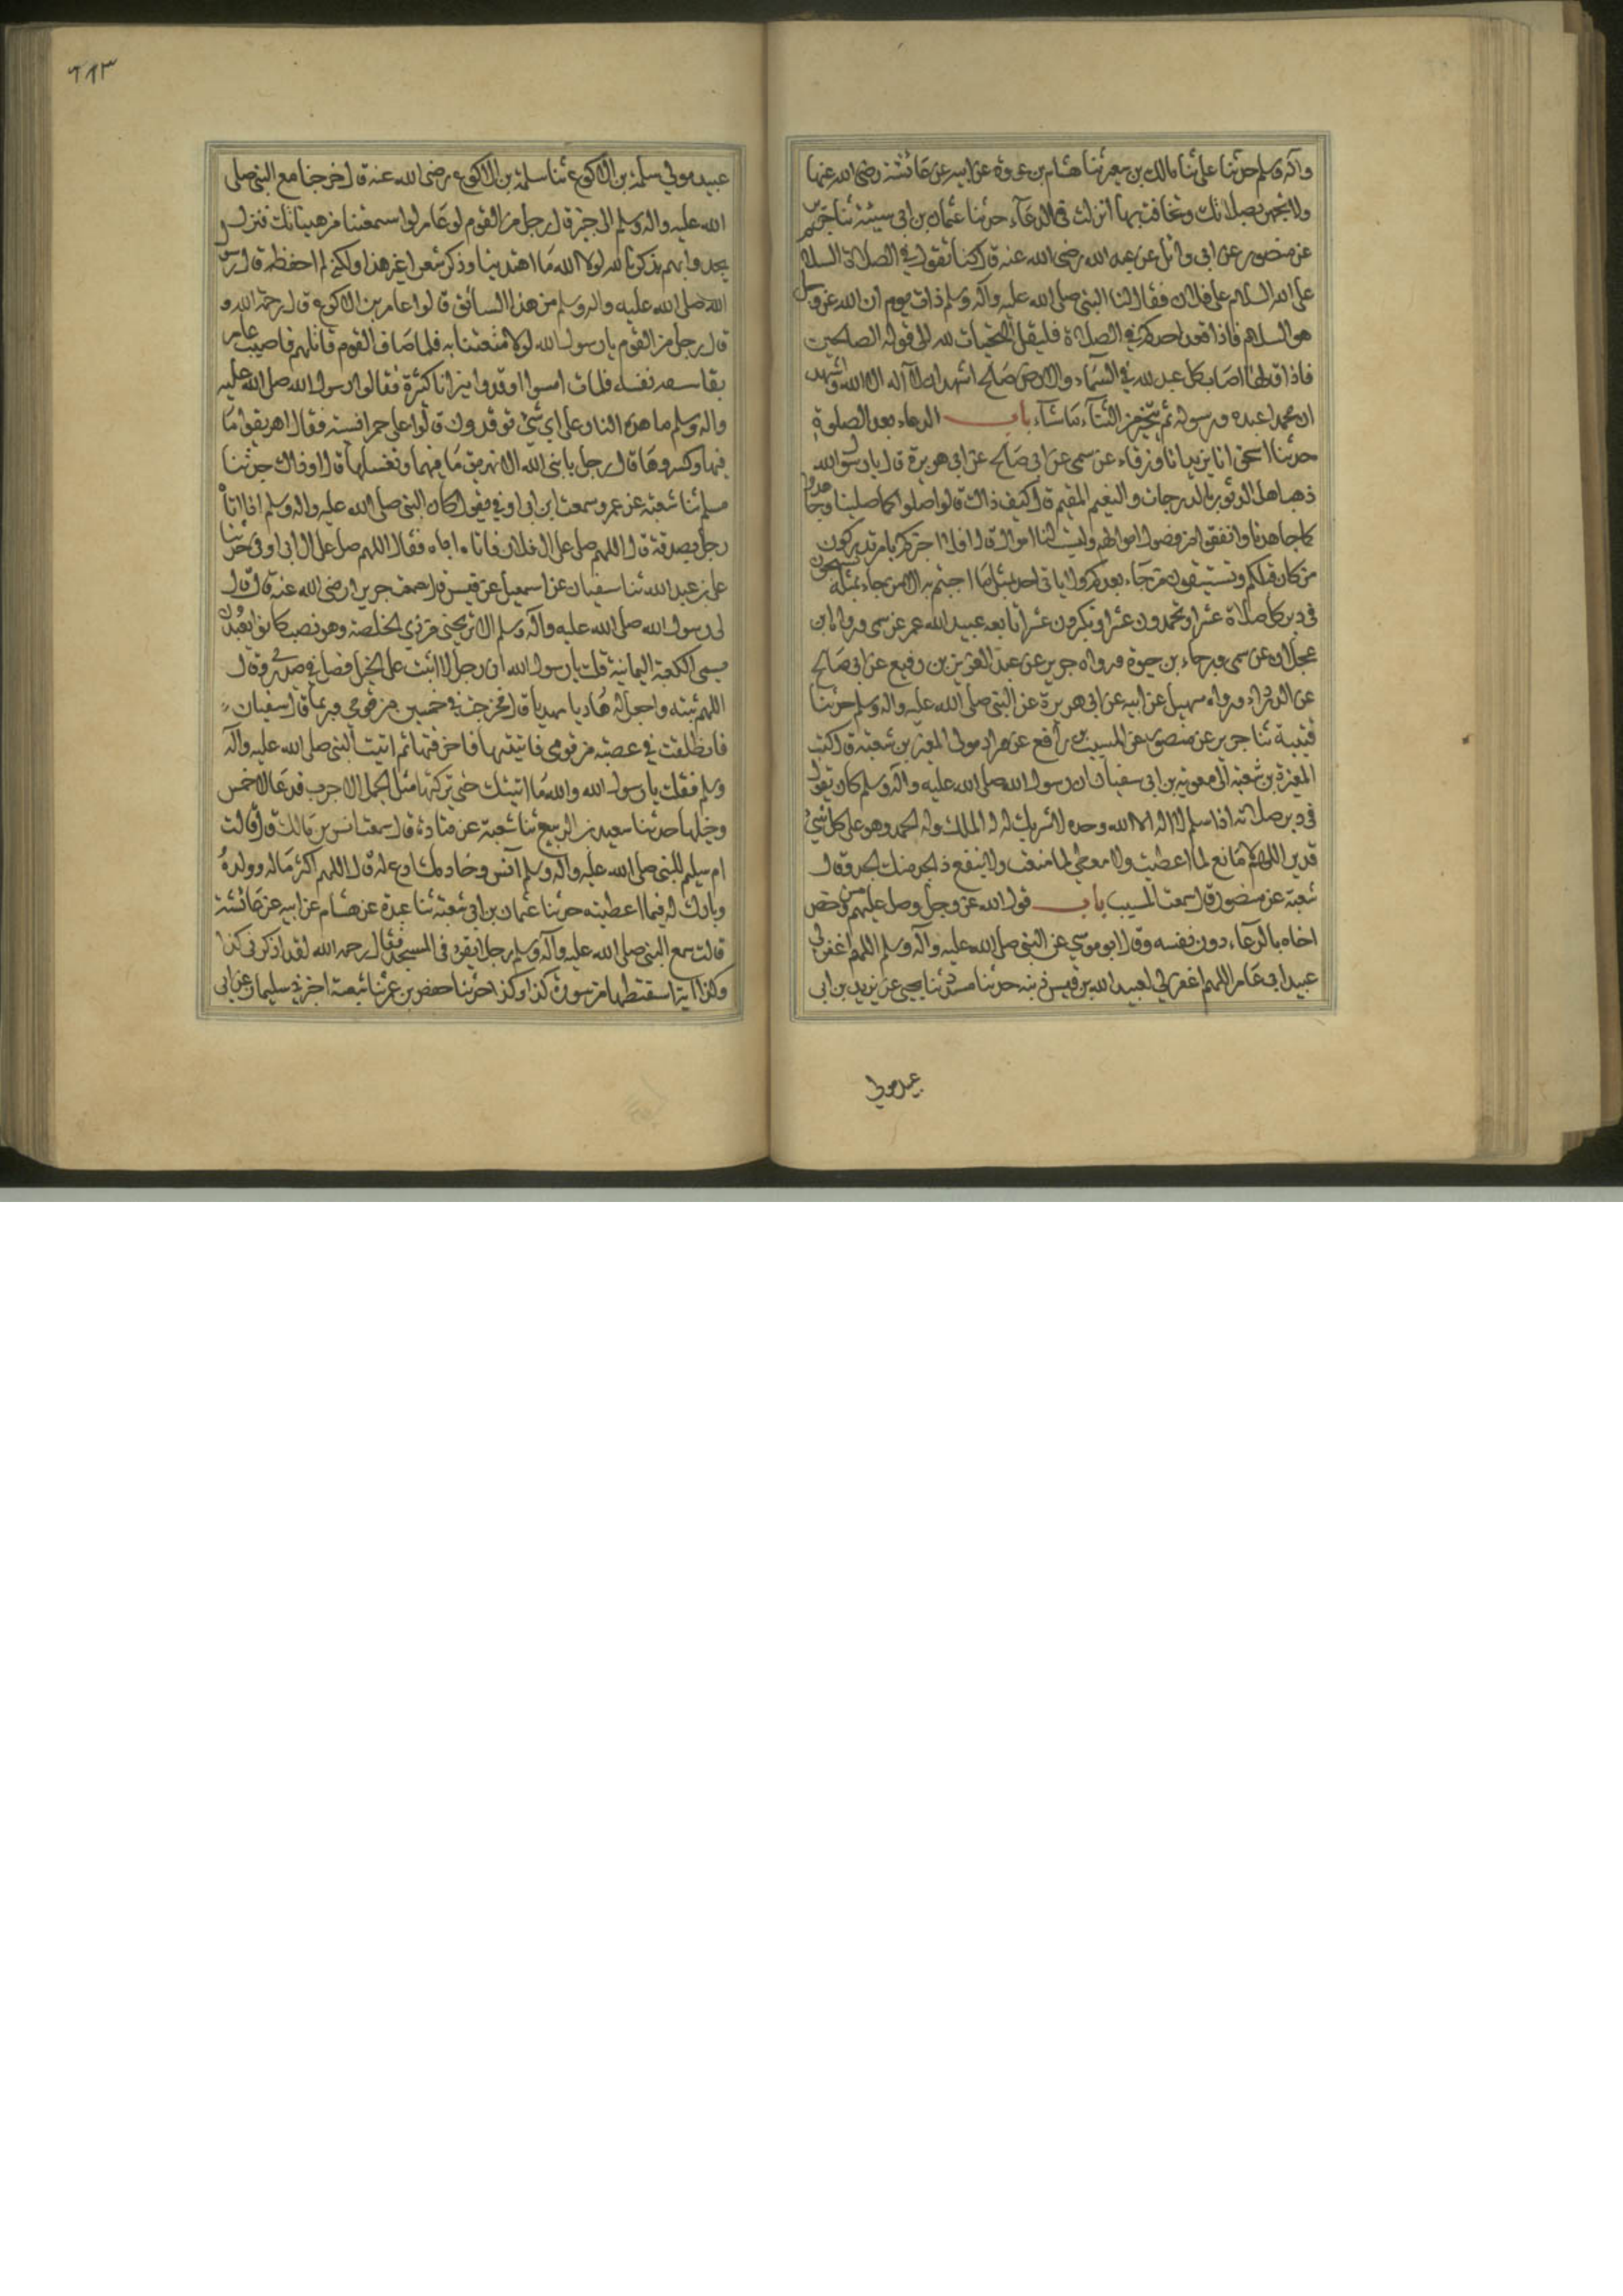 وآله وسلم حدثنا علي ثنا مالك بن سعير ثنا هشام بن عروة عن ابيه عن عائشة رضي الله عنها
ولا تجهر بصلاتك ولا تخافت بها انزلت في الدعاء حدثنا عثمان بن ابي شيبة ثنا جرير
عن منصور عن ابي وائل عن عبد الله رضي الله عنه قال كنا نقول في الصلاة السلام
على الله السلام على فلان فقال لنا النبي صلى الله عليه وآله وسلم ذات يوم ان الله عز وجل
هو السلام فاذا قعد احدكم في الصلاة فليقل التحيات لله الى قوله الصالحين
فاذا قالها اصاب كل عبد لله في السماء والارض صالح اشهد ان لا اله الا الله واشهد
ان محمدا عبده ورسوله ثم يتخير من الثناء ما شاء باب الدعاء بعد الصلوة
حدثنا اسحق انا يزيد انا ورقاء عن سمي عن ابي صالح عن ابي هريرة قال يا رسول الله
ذهب اهل الدثور بالدرجات والنعيم المقيم قال كيف ذاك قالوا صلوا كما صلينا وجاهدوا
كما جاهدنا وانفقوا من فضول اموالهم وليست لنا اموال قال افلا اخبركم بامر تدركون
من كان قبلكم وتسبقون من جاء بعدكم ولا ياتي احد بمثل ما جئتم به الا من جاء بمثله تسبحون
في دبر كل صلاة عشرا وتحمدون عشرا وتكبرون عشرا تابعه عبيد الله عمر عن سمي ورواه ابن
عجلان عن سمي ورجاء بن حيوة ورواه جرير عن عبد العزيز بن رفيع عن ابي صالح
عن ابي الدرداء ورواه سهيل عن ابيه عن ابي هريرة عن النبي صلى الله عليه واله وسلم حدثنا
قتيبة ثنا جرير عن منصور عن المسيب بن رافع عن وراد مولى المغيرة بن شعبة قال كتب
المغيرة بن شعبة الى معوية بن ابي سفيان ان رسول الله صلى الله عليه وآله وسلم كان يقول
في دبر صلاته اذا سلم لا اله الا الله وحده لا شريك له له الملك وله الحمد وهو على كل شيء
قدير اللهم لا مانع لما اعطيت ولا معطي لما منعت ولا ينفع ذا الجد منك الجد وقال
شعبة عن منصور قال سمعت المسيب باب قول الله عز وجل وصل عليهم ومن خص
اخاه بالدعاء دون نفسه وقال ابو موسى عن النبي صلى الله عليه وآله وسلم اللهم اغفر لي
عبيد ابي عامر اللهم اغفر لي لعبد الله بن قيس ذنبه حدثنا مسدد ثنا يحيى عن يزيد بن ابي
عبيد مولى
٦١٣
عبيد مولى سلمة بن الاكوع ثنا سلمة بن الاكوع رضي الله عنه قال خرجنا مع النبي صلى
الله عليه واله وسلم الى خيبر قال رجل من القوم لو عامر لو اسمعتنا من هنياتك فنزل
يحدو بهم يذكر تالله لولا الله ما اهتدينا وذكر شعرا غير هذا ولكني لم احفظه قال رسول
الله صلى الله عليه واله وسلم من هذا السائق قالوا عامر بن الاكوع قال رحمه الله و
قال رجل من القوم يا رسول الله لولا متعتنا به فلما صاف القوم قاتلهم فاصيب عامر
بقائم سيف نفسه فمات فلما امسوا اوقدوا نيرانا كثيرة فقالوا رسول الله صلى الله عليه
واله وسلم ما هذه النار على اي شيء توقدون قالوا على حمر انسية فقال اهريقوا ما
فيها وكسروها قال رجل يا نبي الله الا نهريق ما فيها ونغسلها قال او ذاك حدثنا
مسلم ثنا شعبة عن عمرو سمعت ابن ابي اوفى يقول كان النبي صلى الله عليه واله وسلم اذا اتاه
رجل بصدقة قال اللهم صل على ال فلان فاتاه ابي فقال اللهم صل على ال ابي اوفى حدثنا
علي بن عبد الله ثنا سفيان عن اسمعيل عن قيس قال سمعت جريرا رضي الله عنه قال قال
لي رسول الله صلى الله عليه وآله وسلم الا تريحني من ذي الخلصة وهو نصب كانوا يعبدون
يسمى الكعبة اليمانية قلت يا رسول الله اني رجل لا اثبت على الخيل فصك في صدري وقال
اللهم ثبته واجعله هاديا مهديا قال فخرجت في خمسين من قومي وربما قال سفيان
فانطلقت في عصبة من قومي فاتيتها فاحرقتها ثم اتيت النبي صلى الله عليه وآله
وسلم فقلت يا رسول الله والله ما اتيتك حتى تركتها مثل الجمل الاجرب فدعا لاحمس
وخيلها حدثنا سعيد بن الربيع ثنا شعبة عن قتادة قال سمعت انس بن مالك قال قالت
ام سليم للنبي صلى الله عليه وآله وسلم انس وخادمك ادع له قال اللهم اكثر ماله وولده
وبارك له فيما اعطيته حدثنا عثمان بن ابي شعبة ثنا عبدة عن هشام عن ابيه عن عائشة
قالت سمع النبي صلى الله عليه وآله وسلم رجلا يقرء في المسجد فقال رحمه الله لقد اذكرني كذا
وكذا اية اسقطتها من سورة كذا وكذا حدثنا حفص بن عمر ثنا شعبة اخبرني سليمان عن ابي